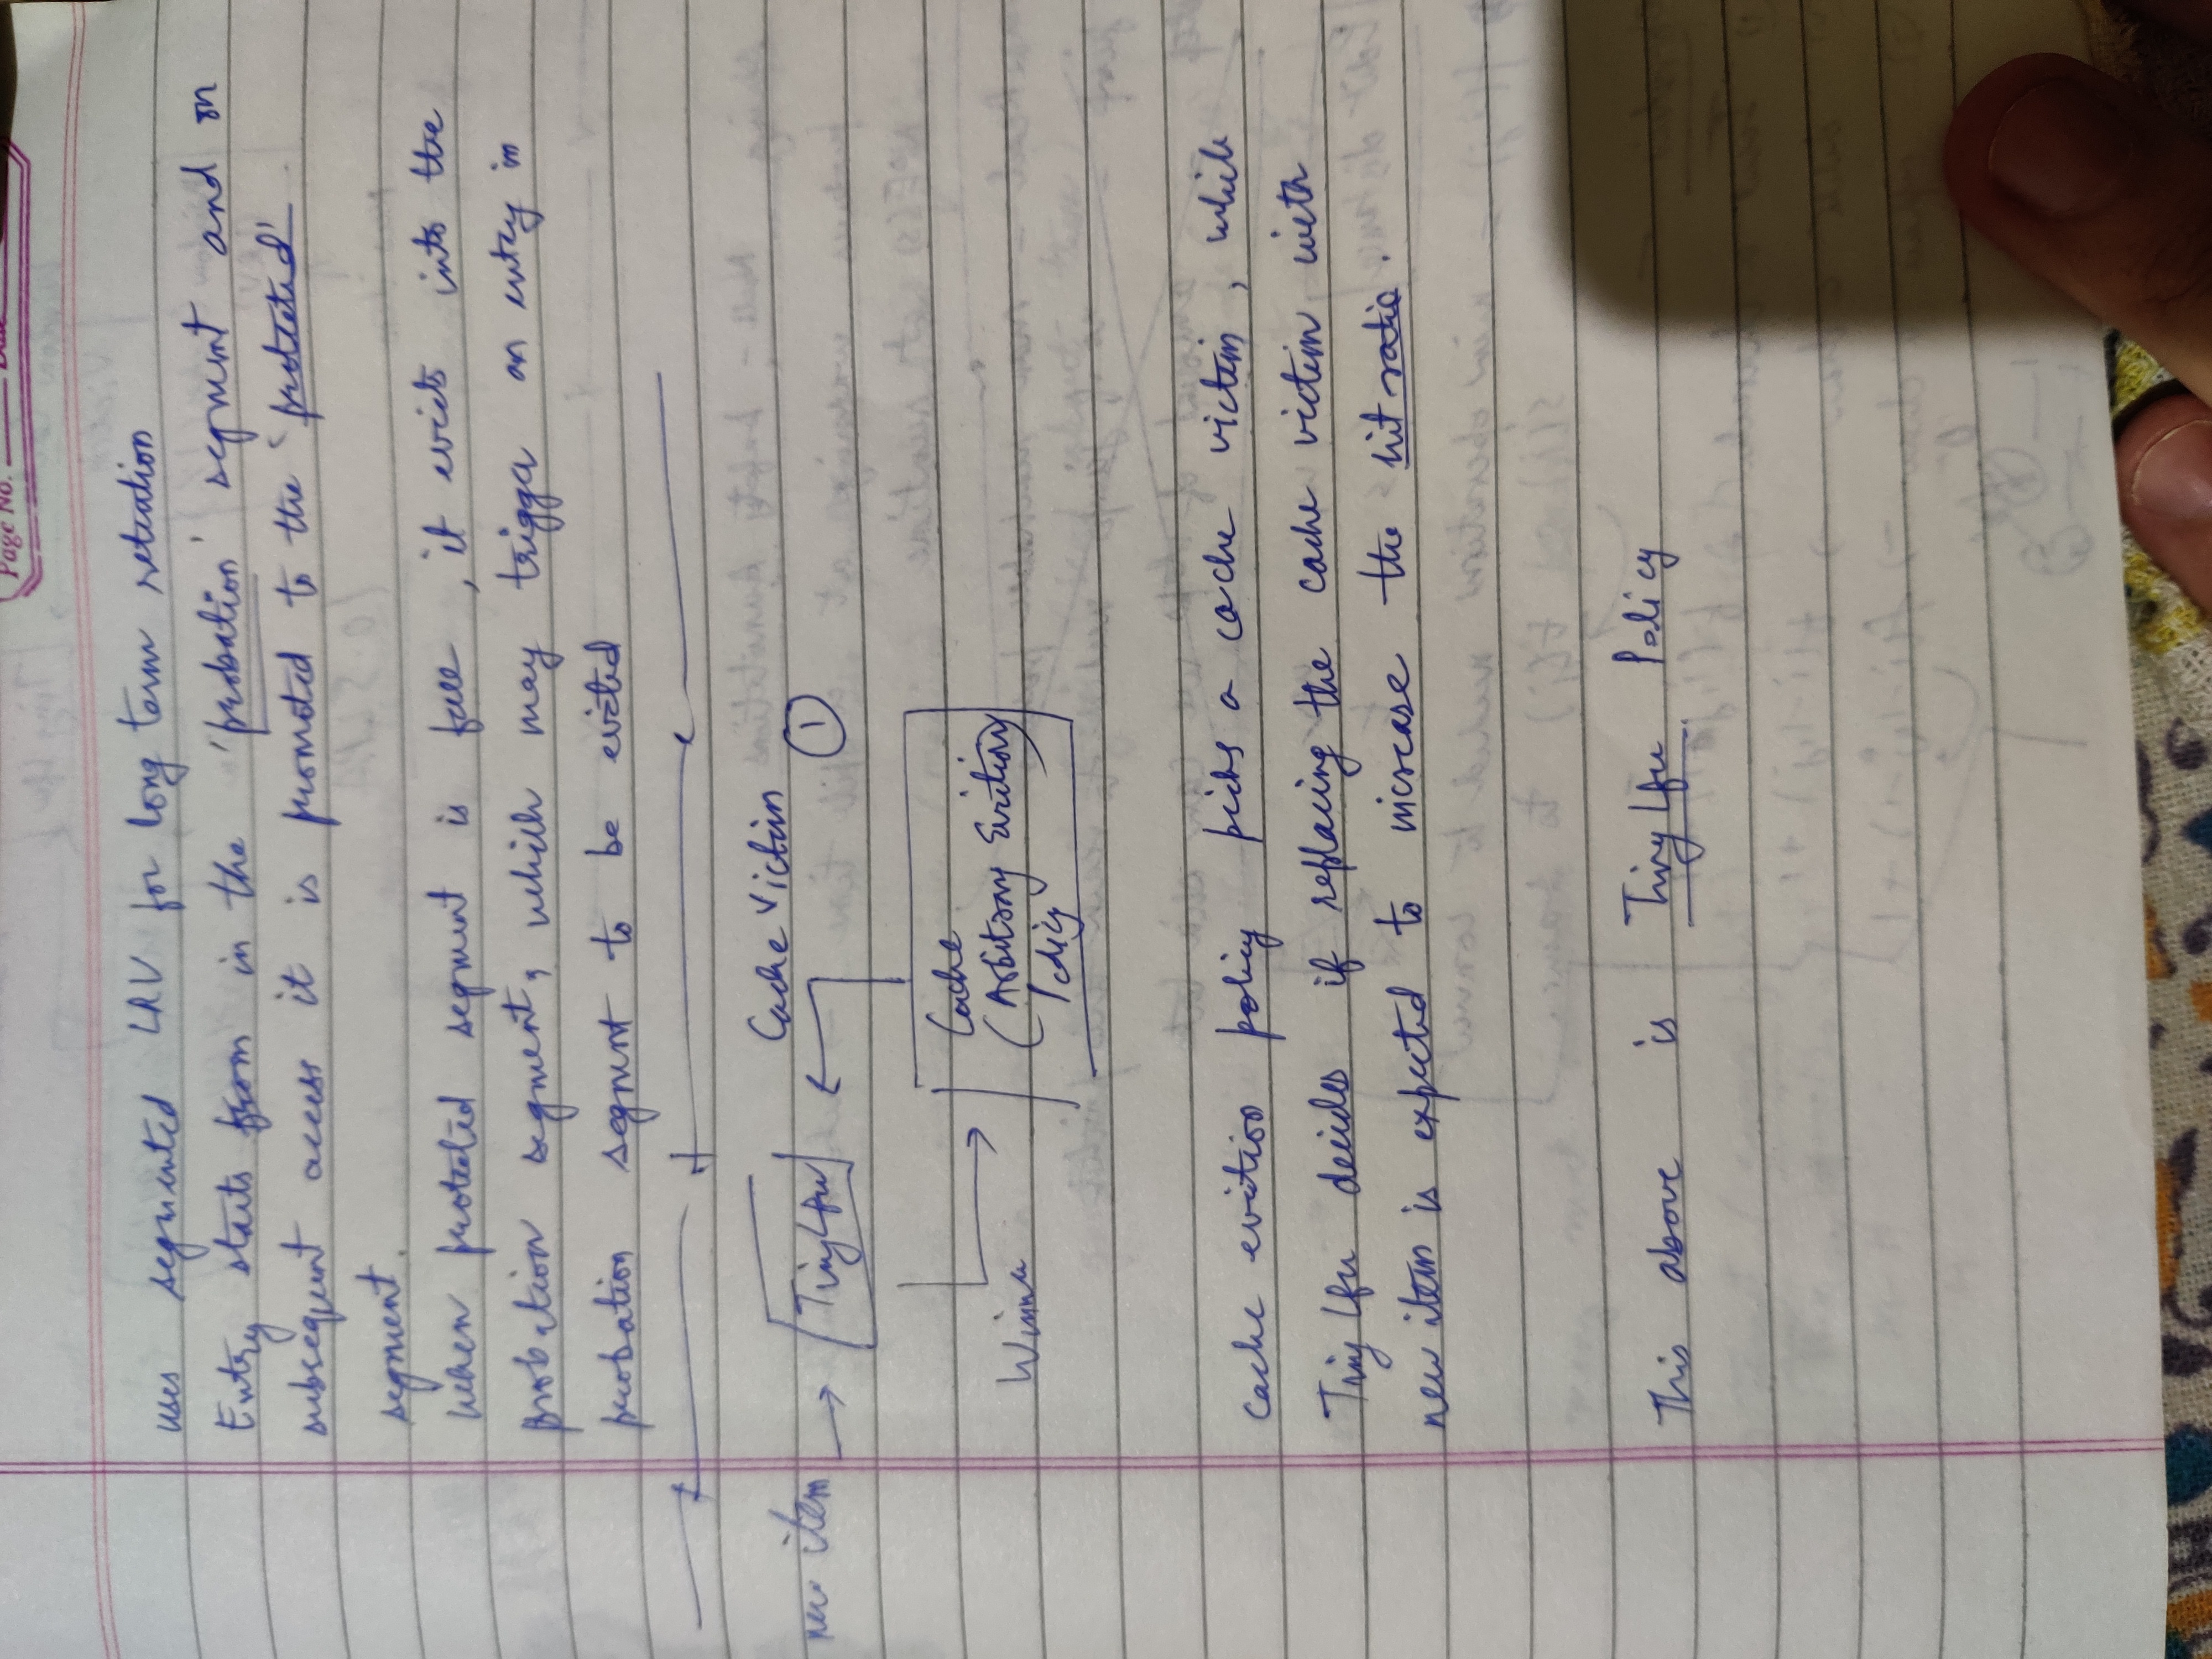 Page No.
uses segmented LRU for long term retention
Entry starts from in the 'probation' segment and on
subsequent access it is promoted to the 'protected'
segment.
when protected segment is full, it evicts into the
probation segment, which may trigger an entry in
probation segment to be evicted
new item → TinyLfu ← Cache Victim ①
Winner → Cache
(Arbitrary Eviction)
Policy
Cache eviction policy picks a cache victim, while
TinyLfu decides if replacing the cache victim with
new item is expected to increase the hit-ratio.
This above is TinyLfu Policy